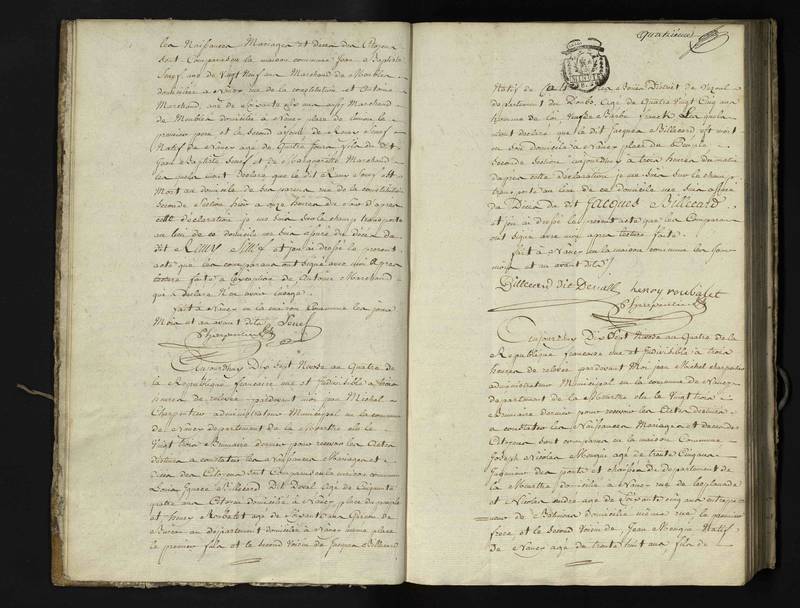 les Naissances Mariages et décès des Citoyens
sont Comparus en la maison commune Jean Baptiste
agé de Vingt Neuf ans Marchand de Meubles
domicilié à Nancy rue de la constitution et Antoine
Marchand, agé de soixante six ans aussy Marchand
de Meubles domicilié à Nancy place de le
premier pere et le second ayeul de Remy
Natif de Nancy agé de Quatre jours, fils du dit
Jean Baptiste et de Marguerite Marchand
lesquels m'ont Declaré que le dit Remy est
Mort au domicile de ses parens rue de la constitution
seconde Section hier à onze heures du soir d'apres
cette déclaration je me suis sur le champ transporté
au lieu de ce domicile me suis assuré du décès du
dit Remy et j'en ai dressé le present
acte que les comparans ont signé avec moi apres
lecture faite à l'exception de Antoine Marchand
qui a declaré n'en avoir l'usage.
fait à Nancy en la maison Commune les jours
Mois et an avant dits
Charpentier
Aujourdhuy Dix Sept Nivose an Quatre de
la Republique française une et Indivisible à trois
heures de relevée pardevant moi Jean Michel
Charpentier administrateur Municipal en la commune
de Nancy département de la Meurthe élu le
Vingt trois Brumaire dernier pour recevoir les Actes
destinés à constater les naissances Mariages et
décès des Citoyens sont Comparus en la maison commune
Louis Ignace Billecard Dit Derval agé de Cinquante
quatre ans Citoyen domicilié à Nancy place du peuple
et henry Roubalet agé de soixante ans Garcon de
Bureau au département domicilié à Nancy meme place
le premier fils et le second Voisin de Jacques Billecard
quatrieme
Natif de District de
departement du Doubs, agé de Quatre Vingt Cinq ans
homme de loi, Veuf de Barbe Lesquels
m'ont declaré que le dit Jacques Billecard est mort
en son domicile à Nancy place du Peuple,
Seconde Section aujourdhuy à trois heures du matin
d'apres cette déclaration je me suis sur le champ
transporté au lieu de ce domicile me suis assuré
du Décès du dit Jacques Billecard.
et j'en ai dressé le present acte que les Comparans
ont signé avec moi apres lecture faite.
fait à Nancy en la maison commune les jour
mois et an avant dits
Billecard dit Dervall henry roubalet
Charpentier
Aujourdhuy Dix Sept Nivose an Quatre de la
Republique française une et Indivisible à trois
heures de relevée pardevant Moi Jean Michel charpentier
administrateur Municipal en la commune de Nancy
département de la Meurthe élu le Vingt trois
Brumaire dernier pour recevoir les Actes destinés
à constater les Naissances Mariages et décès des
Citoyens sont comparus en la maison Commune
Joseph Nicolas Mengin agé de trente Cinq ans
Ingenieur des ponts et chaussées du département de
la Meurthe domicilié à Nancy rue de l'esplanade
et Nicolas André agé de Soixante cinq ans entrepre
neur de Bâtimens domicilié même rue le premier
frere, et le second Voisin de Jean Mengin Natif
de Nancy agé de trente huit ans, fils de